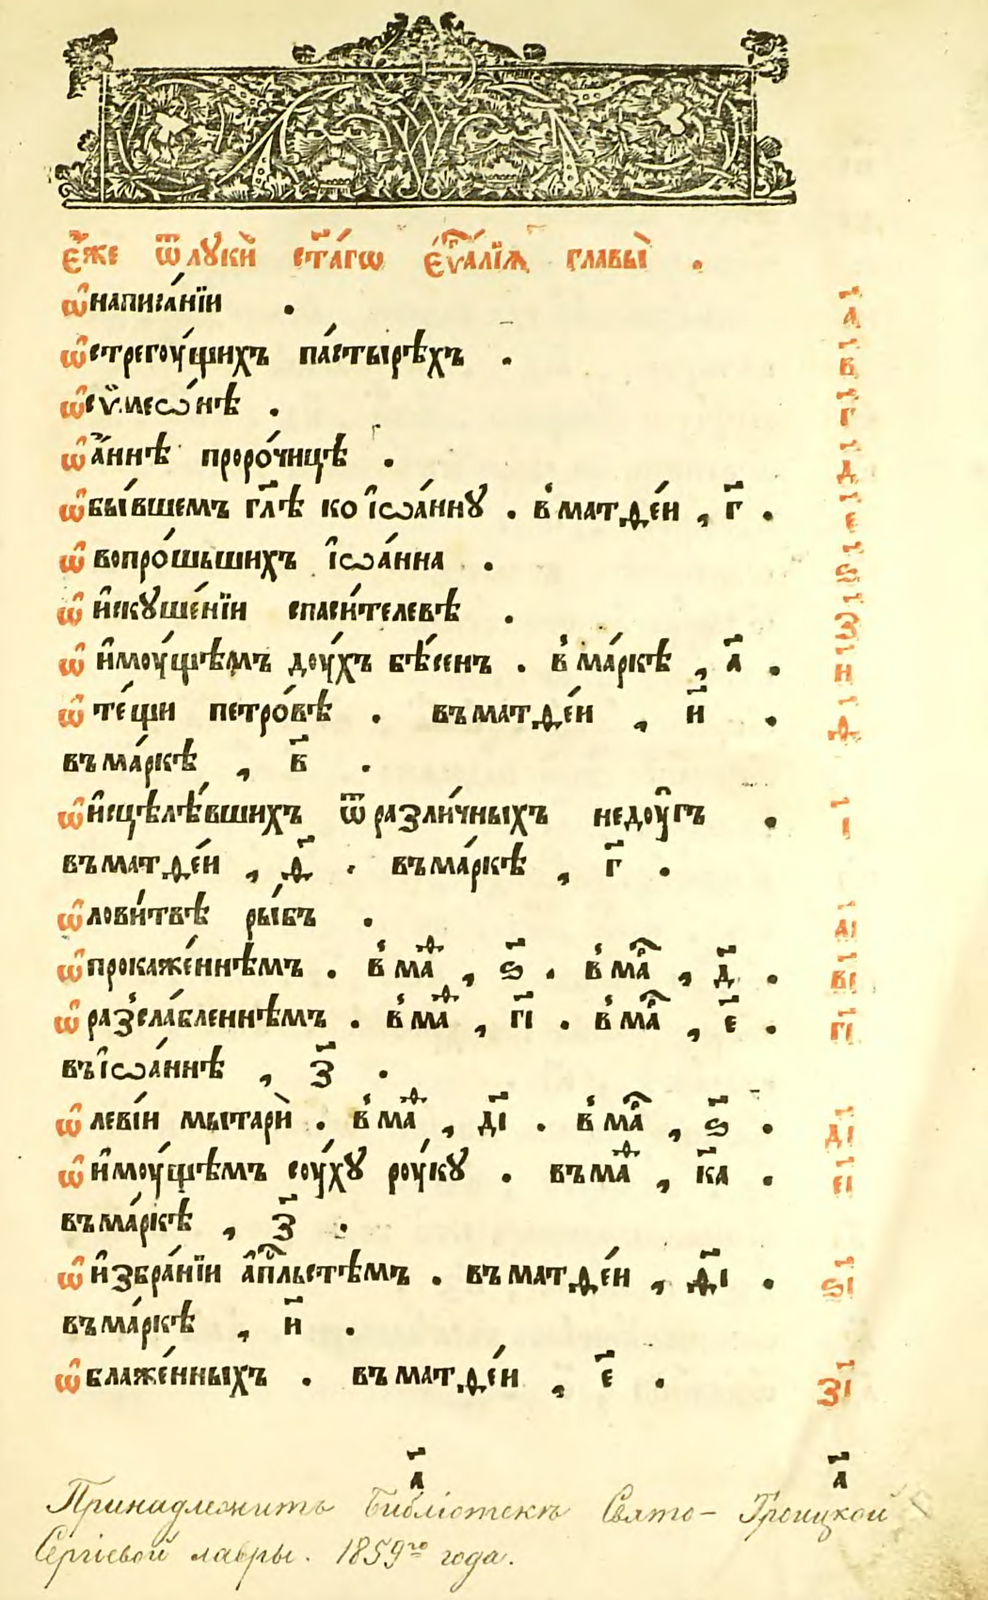 Е҆́же ѿ лꙋкѝ ст҃а́гѡ є҆ѵⷢ҇а́лїѧ главы̀ .
ѡ҆ написа́нїи . а҃
ѡ҆ стрегоу́щихъ па́стырѣхъ . в҃
ѡ҆ сѷмеѡ́нѣ . г҃
ѡ҆ а҆́ннѣ проро́чицѣ . д҃
ѡ҆ бы́вшемъ гл҃ѣ ко і҆ѡа́ннꙋ . в̾ матѳе́и , г҃ . е҃
ѡ҆ вопро́шьшихъ і҆ѡа́нна . ѕ҃
ѡ҆ и҆скꙋше́нїи спаси́телевѣ . з҃
ѡ҆ и҆моу́щѣмъ доу́хъ бѣ́сенъ . в̾ ма́ркѣ , а҃ . и҃
ѡ҆ те́щи петро́вѣ . въ матѳе́и , и҃ . ѳ҃
въ ма́ркѣ , в҃ .
ѡ҆ и҆сцѣлѣ́вшихъ ѿ разли́чныхъ недоу҆гъ . і҃
въ матѳе́и , ѳ҃ . въ ма́ркѣ , г҃ .
ѡ҆ лови́твѣ ры́бъ . а҃і
ѡ҆ прокаже́ннѣмъ . в̾ маⷴ҇ , ѕ҃ . в̾ маⷬ҇ , д҃ . в҃і
ѡ҆ разсла́бленнѣмъ . в̾ маⷴ҇ , г҃і . в̾ маⷬ҇ , е҃ . г҃і
въ і҆ѡа́ннѣ , з҃ .
ѡ҆ леві́и мытарѝ . в̾ маⷴ҇ , д҃і . в̾ маⷬ҇ , ѕ҃ . д҃і
ѡ҆ и҆моу́щѣмъ соу́хꙋ роу́кꙋ . въ маⷴ҇ , к҃а . е҃і
въ ма́ркѣ , з҃ .
ѡ҆ и҆збра́нїи а҆пⷭ҇льстѣмъ . въ матѳе́и , ѳ҃і . ѕ҃і
въ ма́ркѣ , и҃ .
ѡ҆ блаже́нныхъ . въ матѳе́и , е҃ . з҃і
а҃ а҃
Принадлежитъ Библіотекѣ Свято-Троицкой
Сергіевой лавры. 1859го года.